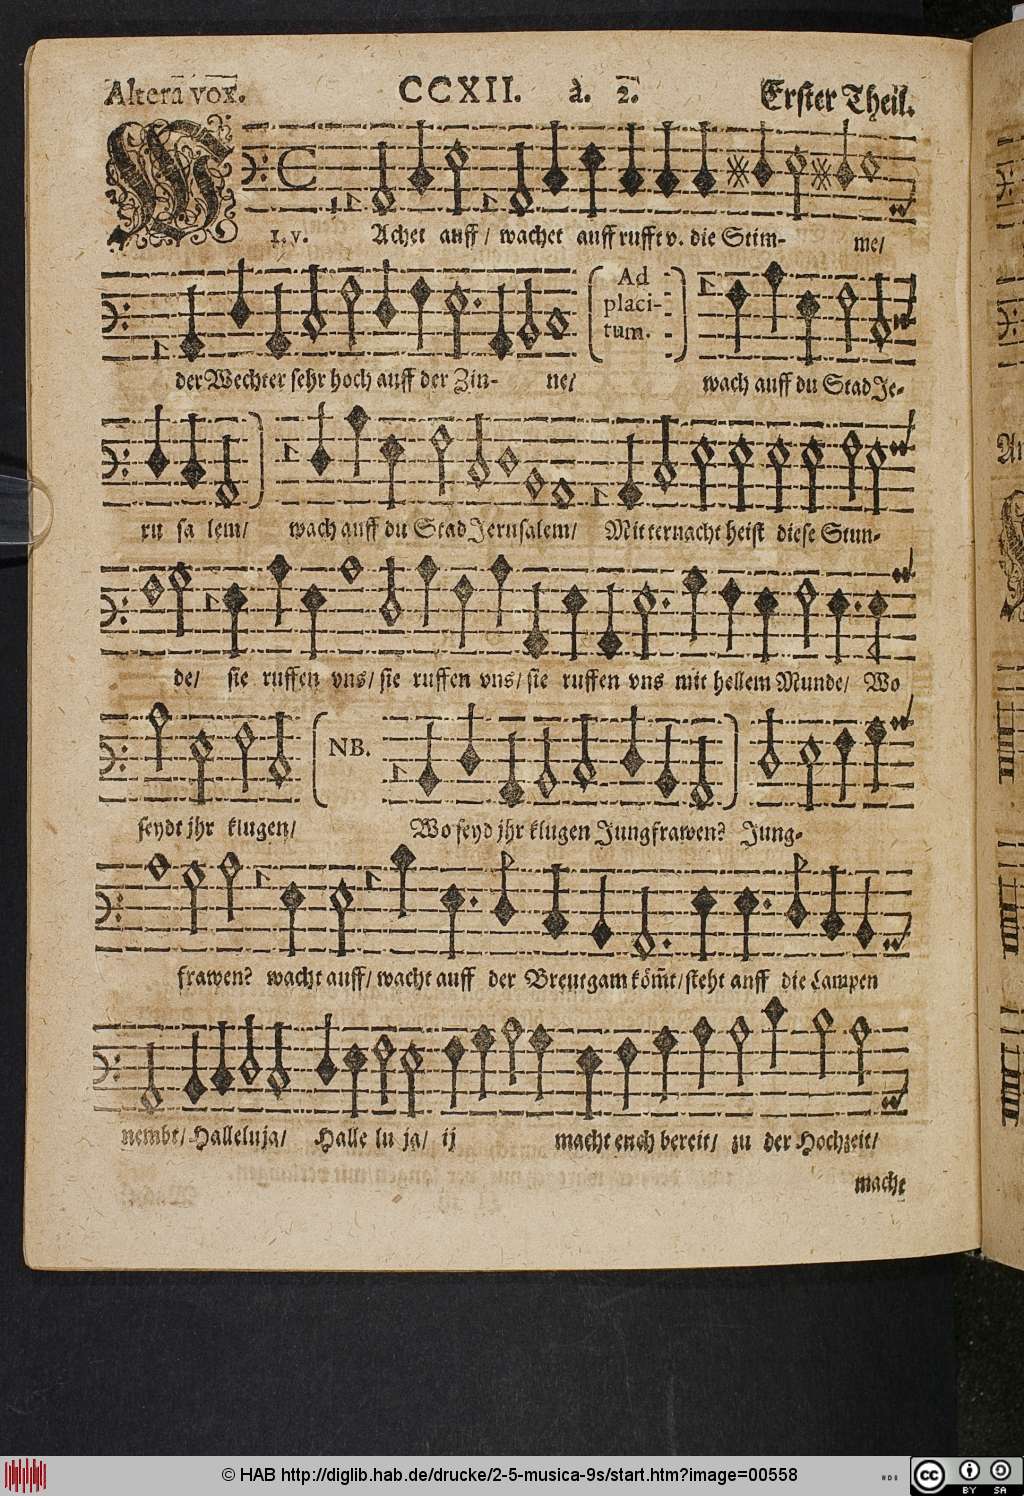 Altera vox. CCXII. à. 2. Erster Theil.
1. v. WAchet auff / wachet auff rufft v. die Stim- me/
Ad
placi-
tum.
der Wechter sehr hoch auff der Zin- ne/ wach auff du Stad Je-
ru sa lem/ wach auff du Stad Jerusalem/ Mitternacht heist diese Stun-
de/ sie ruffen vns/ sie ruffen vns/ sie ruffen vns mit hellem Munde/ Wo
NB.
seydt jhr klugen/ Wo seyd jhr klugen Jungfrawen? Jung-
frawen? wacht auff/ wacht auff der Breutgam köm̃t/ steht auff die Lampen
nembt/ Halleluja/ Halle lu ja/ ij macht euch bereit/ zu der Hochzeit/
mache
© HAB http://diglib.hab.de/drucke/2-5-musica-9s/start.htm?image=00558
cc BY SA